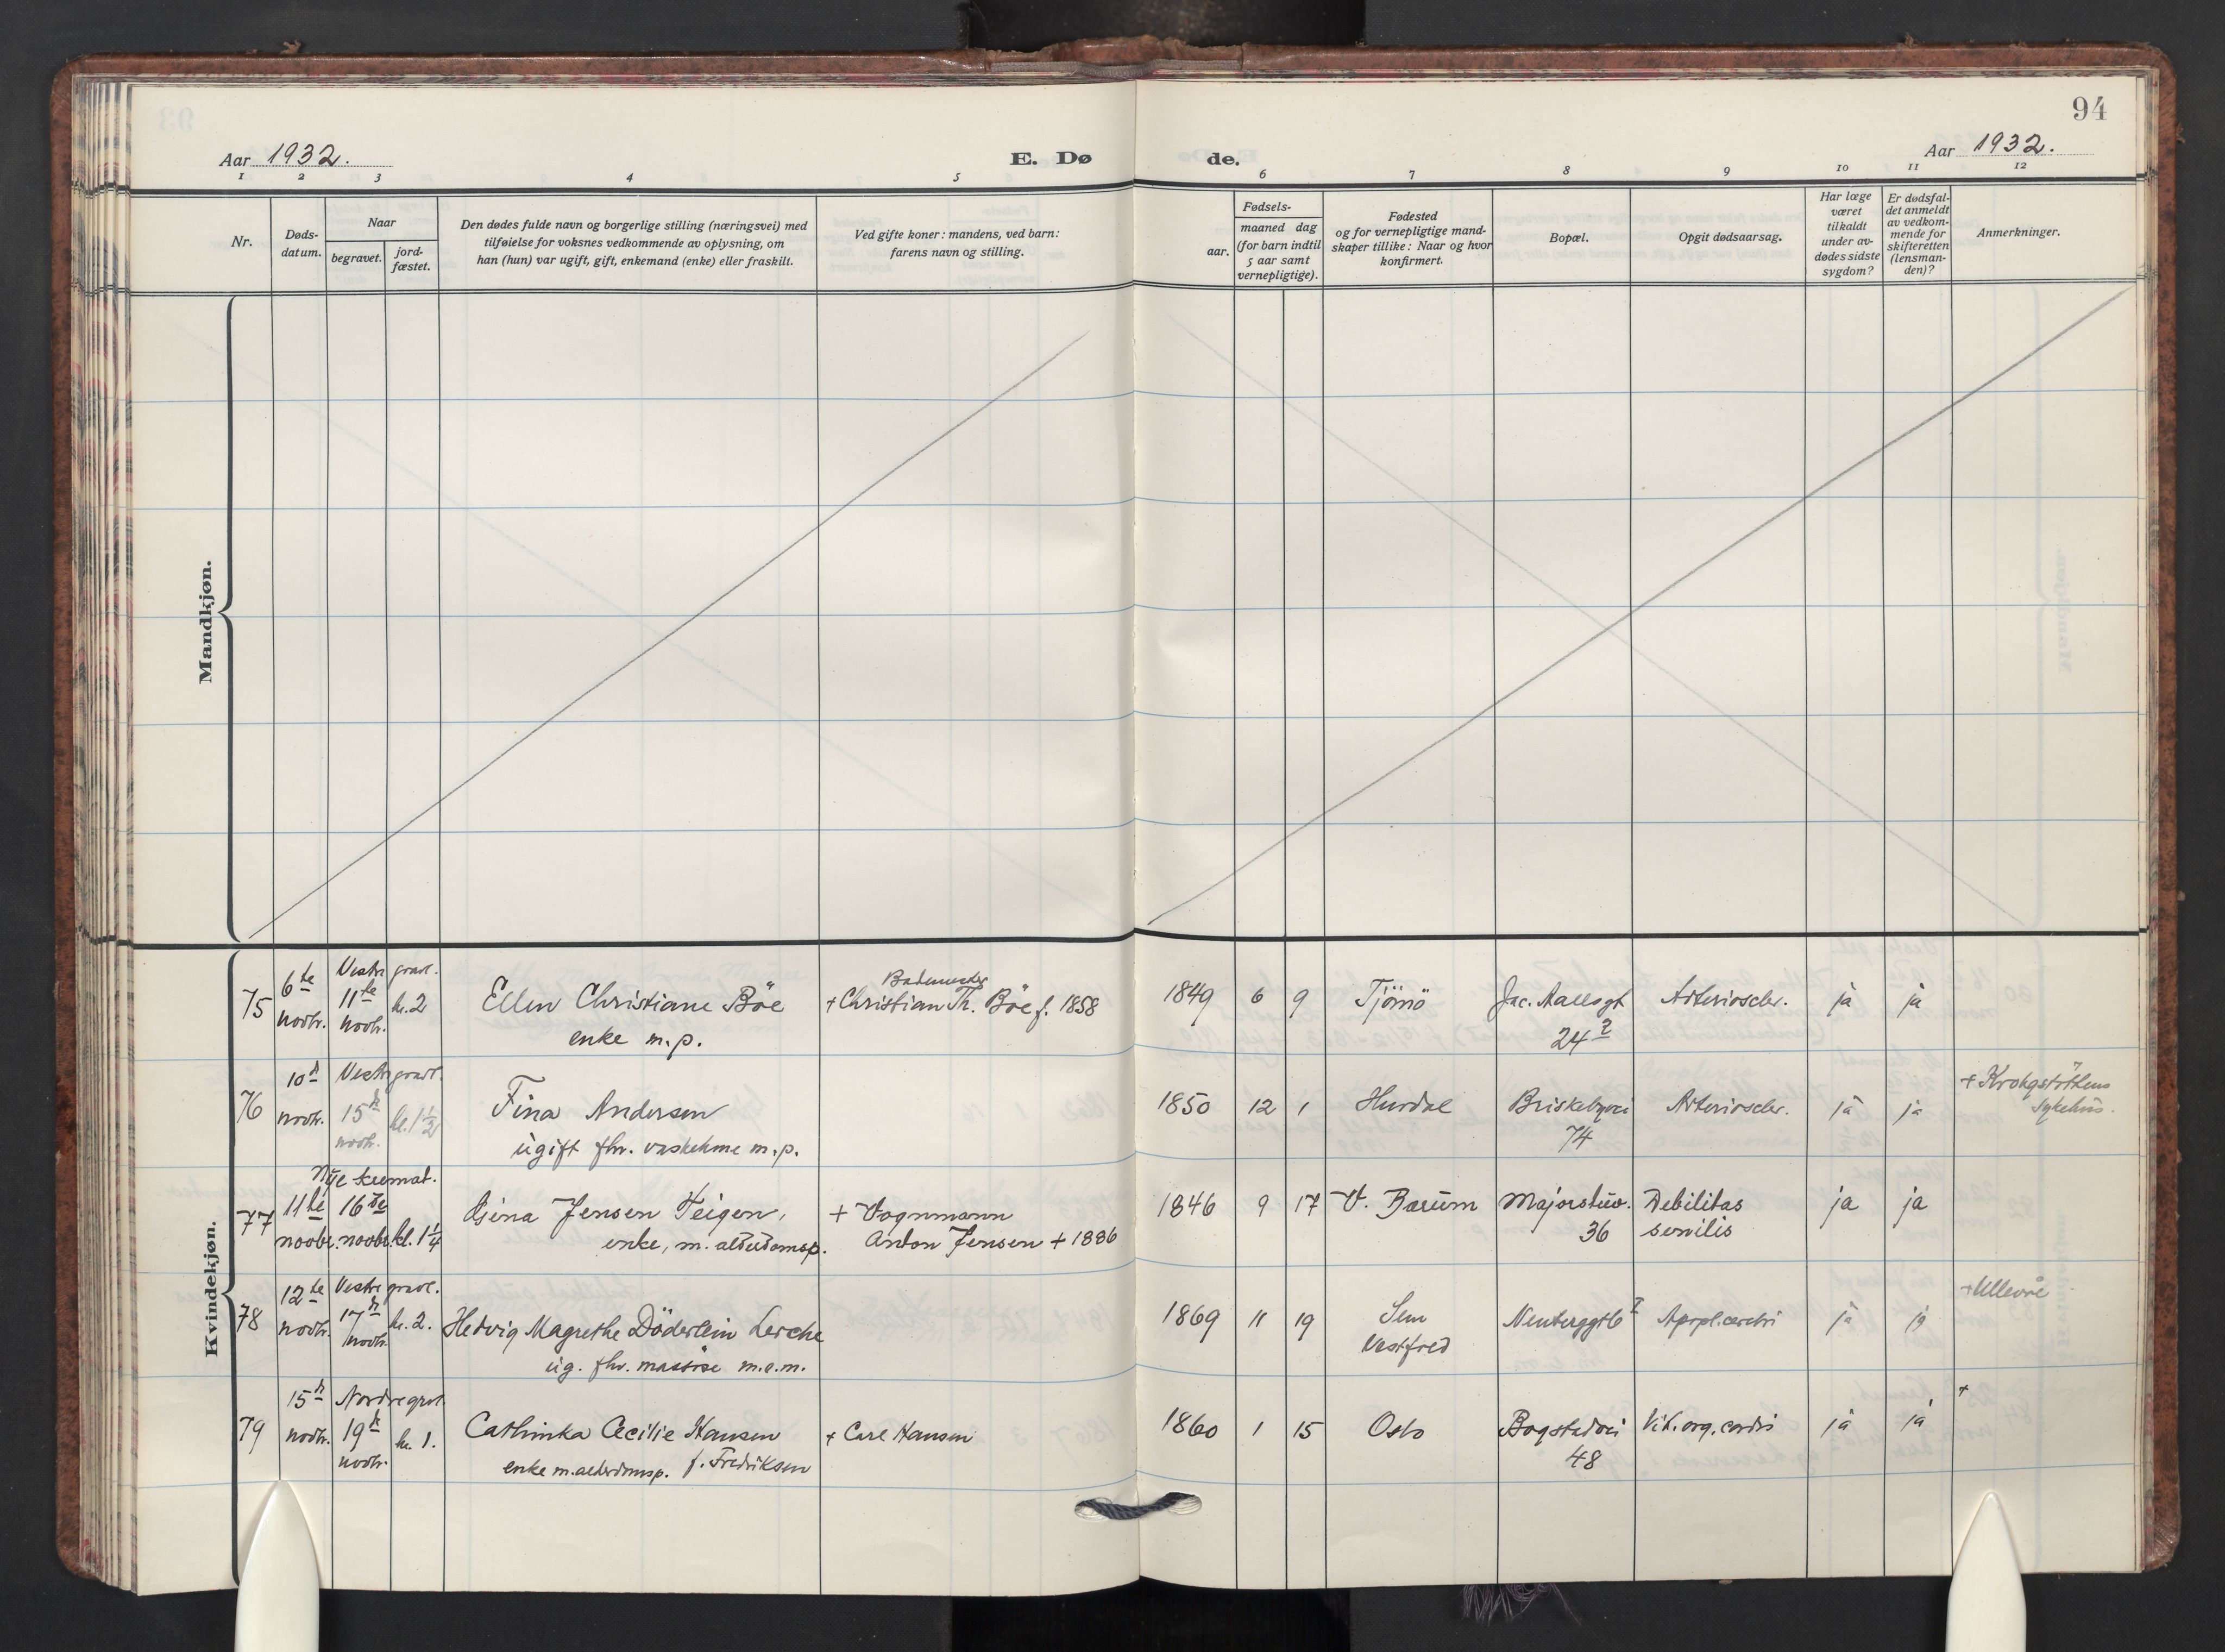 94
Aar 1932.
E. Dø
de.
Aar 1932.
1 2 3 4 5 6 7 8 9 10 11 12
Nr.
Døds-
datum.
Naar
begravet.
jord-
fæstet.
Den dødes fulde navn og borgerlige stilling (næringsvei) med
tilføielse for voksnes vedkommende av oplysning, om
han (hun) var ugift, gift, enkemand (enke) eller fraskilt.
Ved gifte koner: mandens, ved barn:
farens navn og stilling.
Fødsels-
aar.
maaned dag
(for barn indtil
5 aar samt
vernepligtige).
Fødested
og for vernepligtige mand-
skaper tillike: Naar og hvor
konfirmert.
Bopæl.
Opgit dødsaarsag.
Har læge
været
tilkaldt
under av-
dødes sidste
sygdom?
Er dødsfal-
det anmeldt
av vedkom-
mende for
skifteretten
(lensman-
den)?
Anmerkninger.
Mandkjøn.
Kvindekjøn.
75
6te
novbr.
Vestre gravl.
11te
novbr.
kl. 2
Ellen Christiane Böe
enke m.p.
Bademester
+ Christian Th. Böe f. 1858
1849 6 9
Tjömö
Jac. Aallsgt
24
Arterioscler.
ja
ja
76
10de
novbr.
Vestre gravl.
15de
novbr.
kl. 1½
Fina Andersen
ugift fhv. vaskekone m.p.
1850 12 1
Hurdal
Briskebyvei
74
Arterioscler.
ja
ja
+ Krohgstöttens
sykehus.
77
11te
novbr.
Nye kremat.
16de
novbr.
kl. 1¼
Gina Jensen Teigen,
enke, m. alderdomsp.
+ Vognmann
Anton Jensen + 1886
1846 9 17
V. Bærum
Majorstuv.
36
Debilitas
senilis
ja
ja
78
12te
novbr.
Vestre gravl.
17de
novbr.
kl. 2.
Hedvig Magrethe Döderlein Lerche
ug. fhv. massöse m.m.
1869 11 19
Sem
Vestfold
Apopl. cerebri
ja
ja
+ Ullevål
79
15de
novbr.
Nordre gravl.
19de
novbr.
kl. 1.
Cathinka Cecilie Hansen
enke m. alderdomsp. f. Fredriksen
+ Carl Hansen
1860 1 15
Oslo
Bogstadvei
48
Vit. org. cordis
ja
ja
+